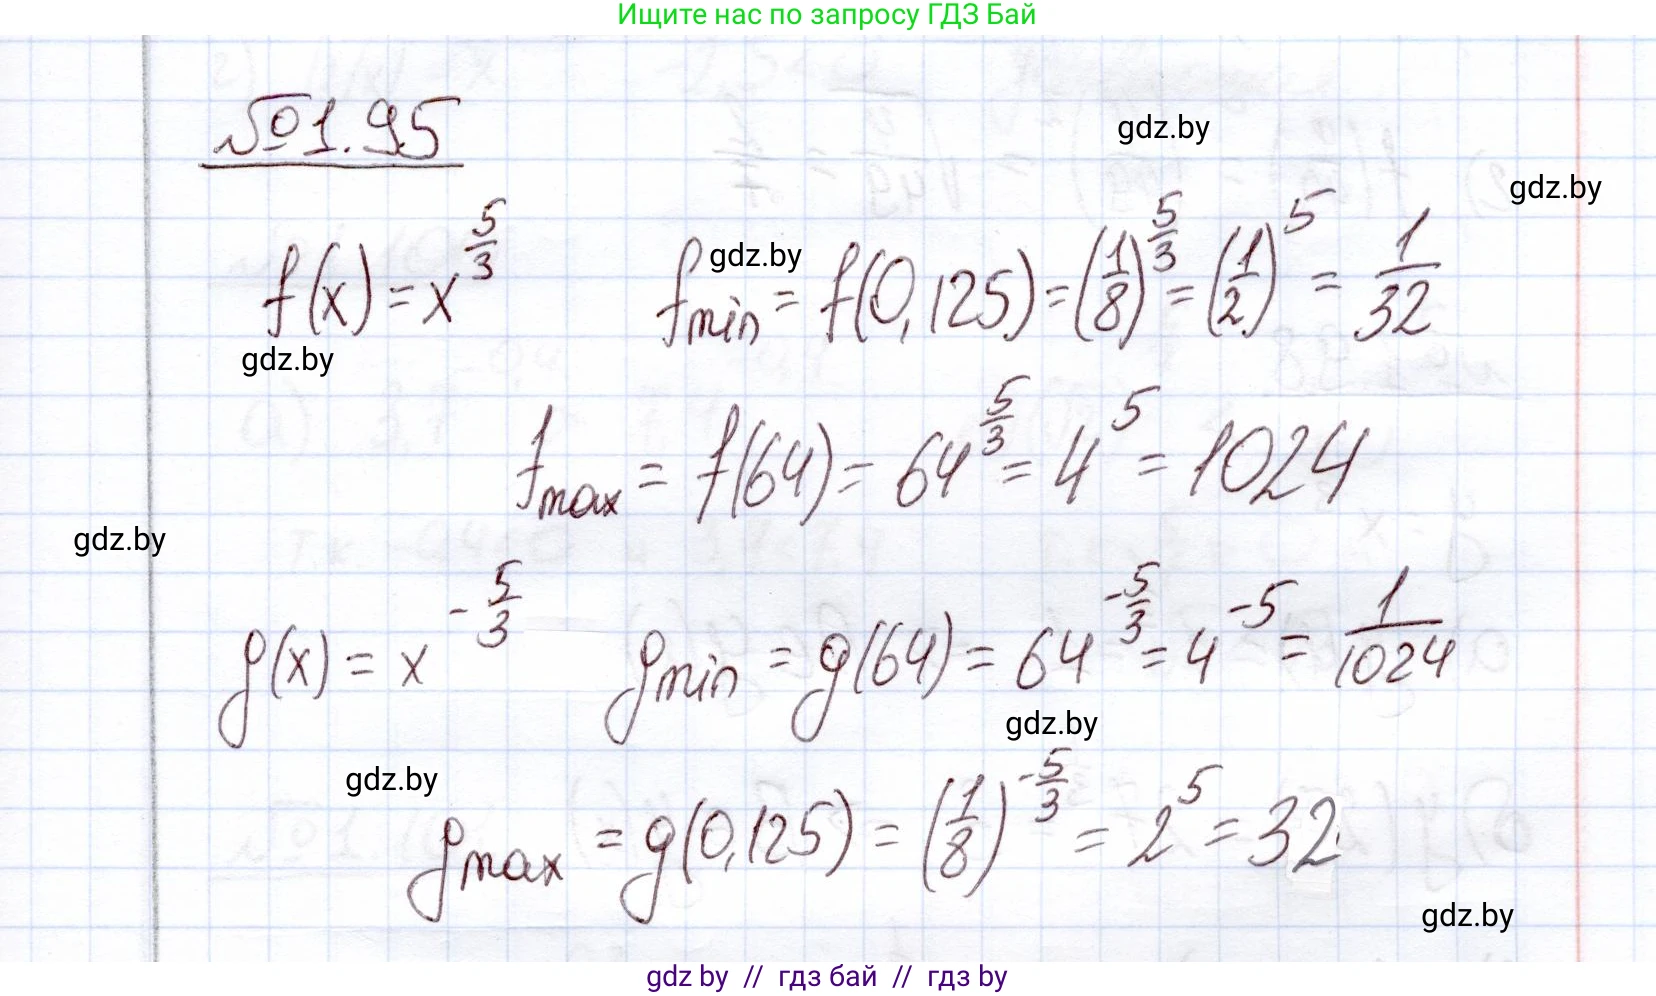 Ищите нас по запросу ГДЗ Бай
№1.95
gdz.by
gdz.by
f(x) = x^{5/3}
gdz.by
f_{min} = f(0,125) = (1/8)^{5/3} = (1/2)^5 = 1/32
gdz.by
f_{max} = f(64) = 64^{5/3} = 4^5 = 1024
gdz.by
g(x) = x^{-5/3}
g_{min} = g(64) = 64^{-5/3} = 4^{-5} = 1/1024
gdz.by
gdz.by
g_{max} = g(0,125) = (1/8)^{-5/3} = 2^5 = 32
gdz.by
gdz by // гдз бай // гдз by